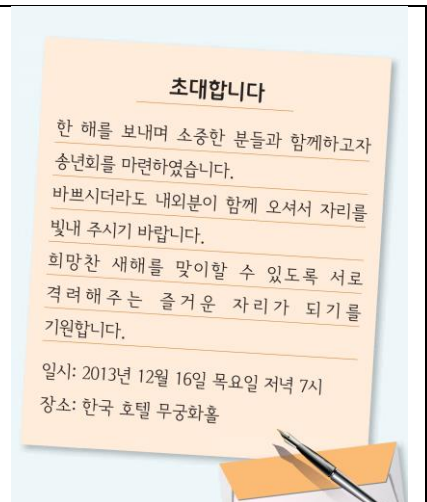 초대합니다
한 해를 보내며 소중한 분들과 함께하고자
송년회를 마련하였습니다.
바쁘시더라도 내외분이 함께 오셔서 자리를
빛내 주시기 바랍니다.
희망찬 새해를 맞이할 수 있도록 서로
격려해주는 즐거운 자리가 되기를
기원합니다.
일시: 2013년 12월 16일 목요일 저녁 7시
장소: 한국 호텔 무궁화홀